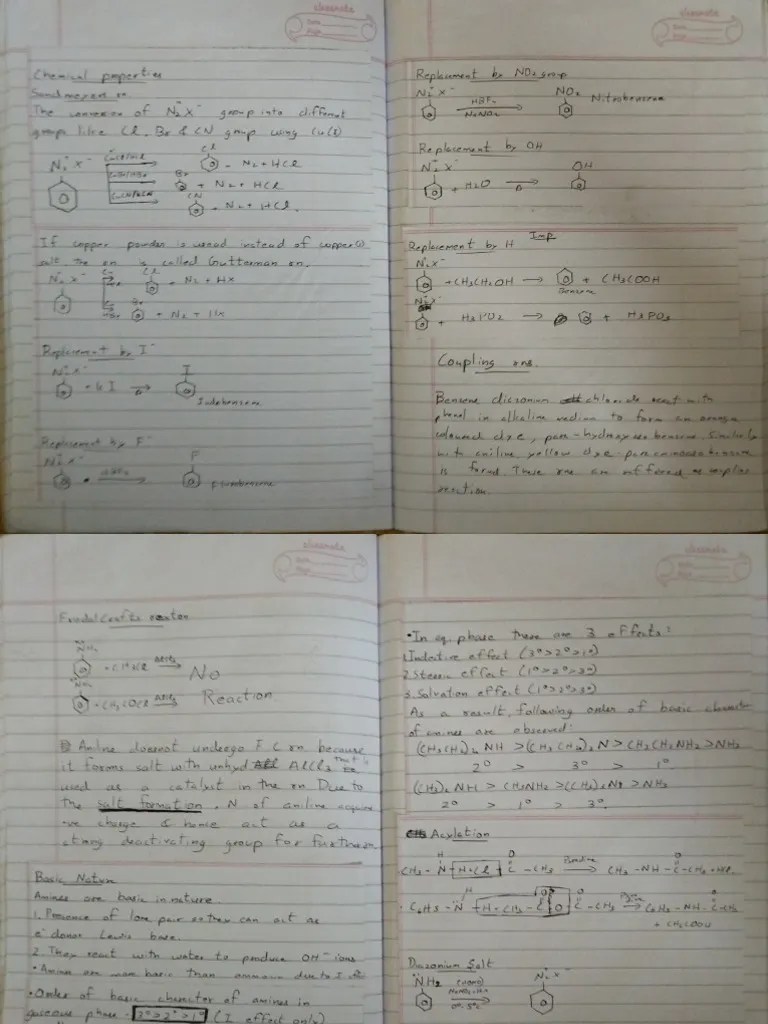 classmate
Chemical properties
Sandmeyers rn
The conversion of N2+X- group into different
groups like Cl, Br & CN group using Cu(I)
N2+X- CuCl/HCl Cl + N2 + HCl
CuBr/HBr Br + N2 + HCl
CuCN/KCN CN + N2 + HCl.
If copper powder is used instead of copper(I)
salt the rn is called Gutterman rn.
N2+X- Cu Cl + N2 + HX
Cu HBr Br + N2 + Hx
Replacement by I-
N2+X- + KI → Δ I
Iodobenzene
Replacement by F-
N2+X- HBF4 → F
Fluorobenzene
classmate
Replacement by NO2 group
N2+X- HBF4 → NO2 Nitrobenzene
NaNO2
Replacement by OH
N2+X- + H2O → Δ OH
Replacement by H Imp
N2+X- + CH3CH2OH → + CH3COOH
Benzene
N2+X- + H3PO2 → + H3PO3
Coupling rns.
Benzene diazonium chloride react with
phenol in alkaline medium to form an orange
coloured dye, para-hydroxyazobenzene. Similarly
with aniline yellow dye para aminoazobenzene
is formed. These rns are reffered as coupling
reaction.
classmate
Friedel Crafts reaction
NH2 + CH3Cl AlCl3 → No
NH2 + CH3COCl AlCl3 → Reaction
Aniline doesnot undergo F.C rn because
it forms salt with unhyd AlCl3 that is
used as a catalyst in the rn Due to
the salt formation, N of aniline acquire
+ve charge & hence act as a
strong deactivating group for further rn
Basic Nature
Amines are basic in nature
1. Presence of lone pair so they can act as
e- donor Lewis base.
2. They react with water to produce OH- ions
• Amines are more basic than ammonia due to I
• Order of basic character of amines in
gaseous phase - 3°>2°>1° (I effect only)
classmate
• In aq. phase there are 3 effects:
1. Inductive effect (3°>2°>1°)
2. Steric effect (1°>2°>3°)
3. Solvation effect (1°>2°>3°)
As a result, following order of basic character
of amines are observed:
(CH3CH2)2 NH > (CH3CH2)3N > CH3CH2NH2 > NH3
2° > 3° > 1°
(CH3)2 NH > CH3NH2 > (CH3)3N > NH3
2° > 1° > 3°
Acylation
CH3 - N - H + Cl - C - CH3 Pyridine → CH3 - NH - C - CH3 + HCl
C6H5 - N - H + CH3 - C - O - C - CH3 → C6H5 - NH - C - CH3
+ CH3COOH
Diazonium Salt
NH2 (HONO) N2+X-
NaNO2+HX →
0°-5°C